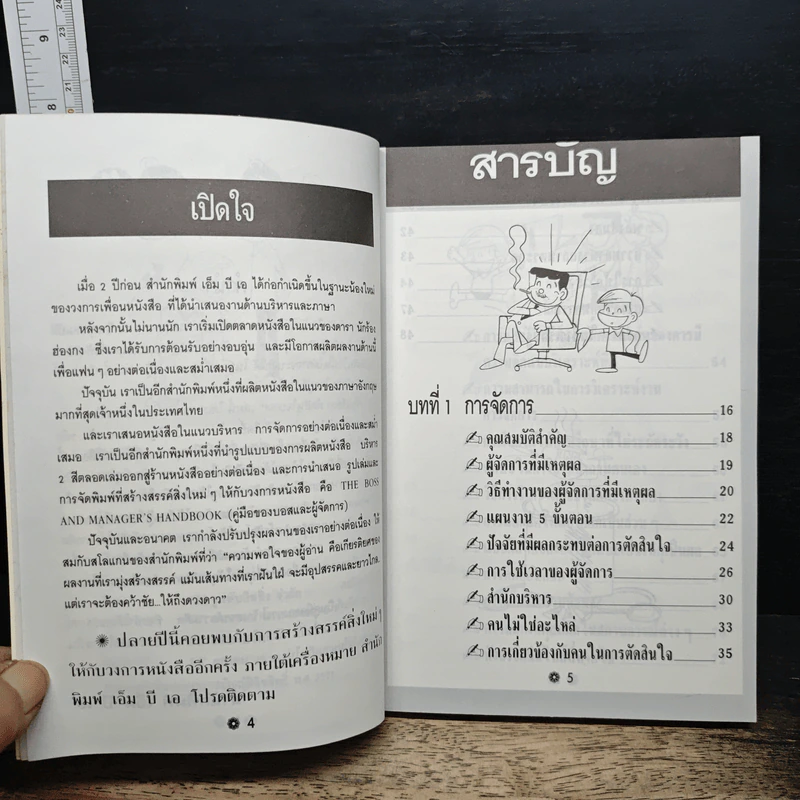 เปิดใจ
เมื่อ 2 ปีก่อน สำนักพิมพ์ เอ็ม บี เอ ได้ก่อกำเนิดขึ้นในฐานะน้องใหม่
ของวงการเพื่อนหนังสือ ที่ได้นำเสนองานด้านบริหารและภาษา
หลังจากนั้นไม่นานนัก เราเริ่มเปิดตลาดหนังสือในแนวของดารา นักร้อง
ฮ่องกง ซึ่งเราได้รับการต้อนรับอย่างอบอุ่น และมีโอกาสผลิตผลงานด้านนี้
เพื่อแฟน ๆ อย่างต่อเนื่องและสม่ำเสมอ
ปัจจุบัน เราเป็นอีกสำนักพิมพ์หนึ่งที่ผลิตหนังสือในแนวของภาษาอังกฤษ
มากที่สุดเจ้าหนึ่งในประเทศไทย
และเราเสนอหนังสือในแนวบริหาร การจัดการอย่างต่อเนื่องและสม่ำ
เสมอ เราเป็นอีกสำนักพิมพ์หนึ่งที่นำรูปแบบของการผลิตหนังสือ บริหาร
2 สีตลอดเล่มออกสู่ร้านหนังสืออย่างต่อเนื่อง และการนำเสนอ รูปเล่มและ
การจัดพิมพ์ที่สร้างสรรค์สิ่งใหม่ ๆ ให้กับวงการหนังสือ คือ THE BOSS
AND MANAGER'S HANDBOOK (คู่มือของบอสและผู้จัดการ)
ปัจจุบันและอนาคต เรากำลังปรับปรุงผลงานของเราอย่างต่อเนื่อง ให้
สมกับสโลแกนของสำนักพิมพ์ที่ว่า "ความพอใจของผู้อ่าน คือเกียรติยศของ
ผลงานที่เรามุ่งสร้างสรรค์ แม้นเส้นทางที่เราฝันใฝ่ จะมีอุปสรรคและยาวไกล..
แต่เราจะต้องคว้าชัย...ให้ถึงดวงดาว"
ปลายปีนี้คอยพบกับการสร้างสรรค์สิ่งใหม่ ๆ
ให้กับวงการหนังสืออีกครั้ง ภายใต้เครื่องหมาย สำนัก
พิมพ์ เอ็ม บี เอ โปรดติดตาม
4
สารบัญ
บทที่ 1 การจัดการ 16
คุณสมบัติสำคัญ 18
ผู้จัดการที่มีเหตุผล 19
วิธีทำงานของผู้จัดการที่มีเหตุผล 20
แผนงาน 5 ขั้นตอน 22
ปัจจัยที่มีผลกระทบต่อการตัดสินใจ 24
การใช้เวลาของผู้จัดการ 26
สำนักบริหาร 30
คนไม่ใช่อะไหล่ 33
การเกี่ยวข้องกับคนในการตัดสินใจ 35
5